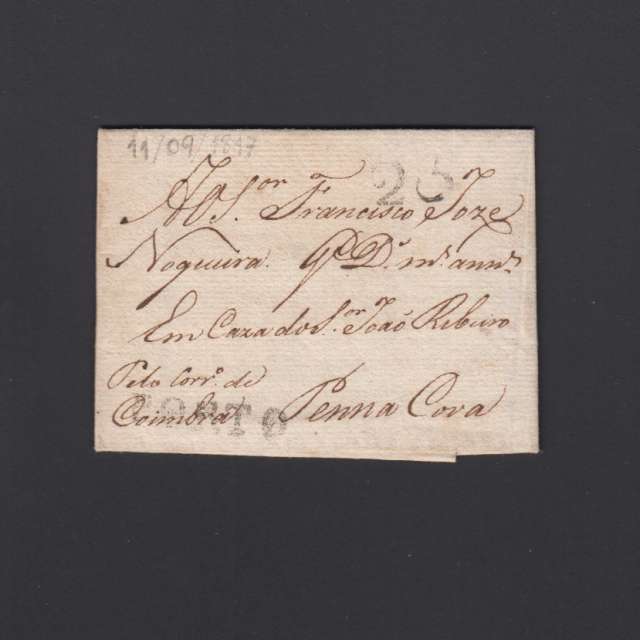 11/09/1817
25
Ao S.or Francisco Joze
Nogueira. G.de D.s m.s ann.s
Em Caza do S.or João Ribeiro
Pelo Corr.o de
Coimbra
Penna Cova
PORTO